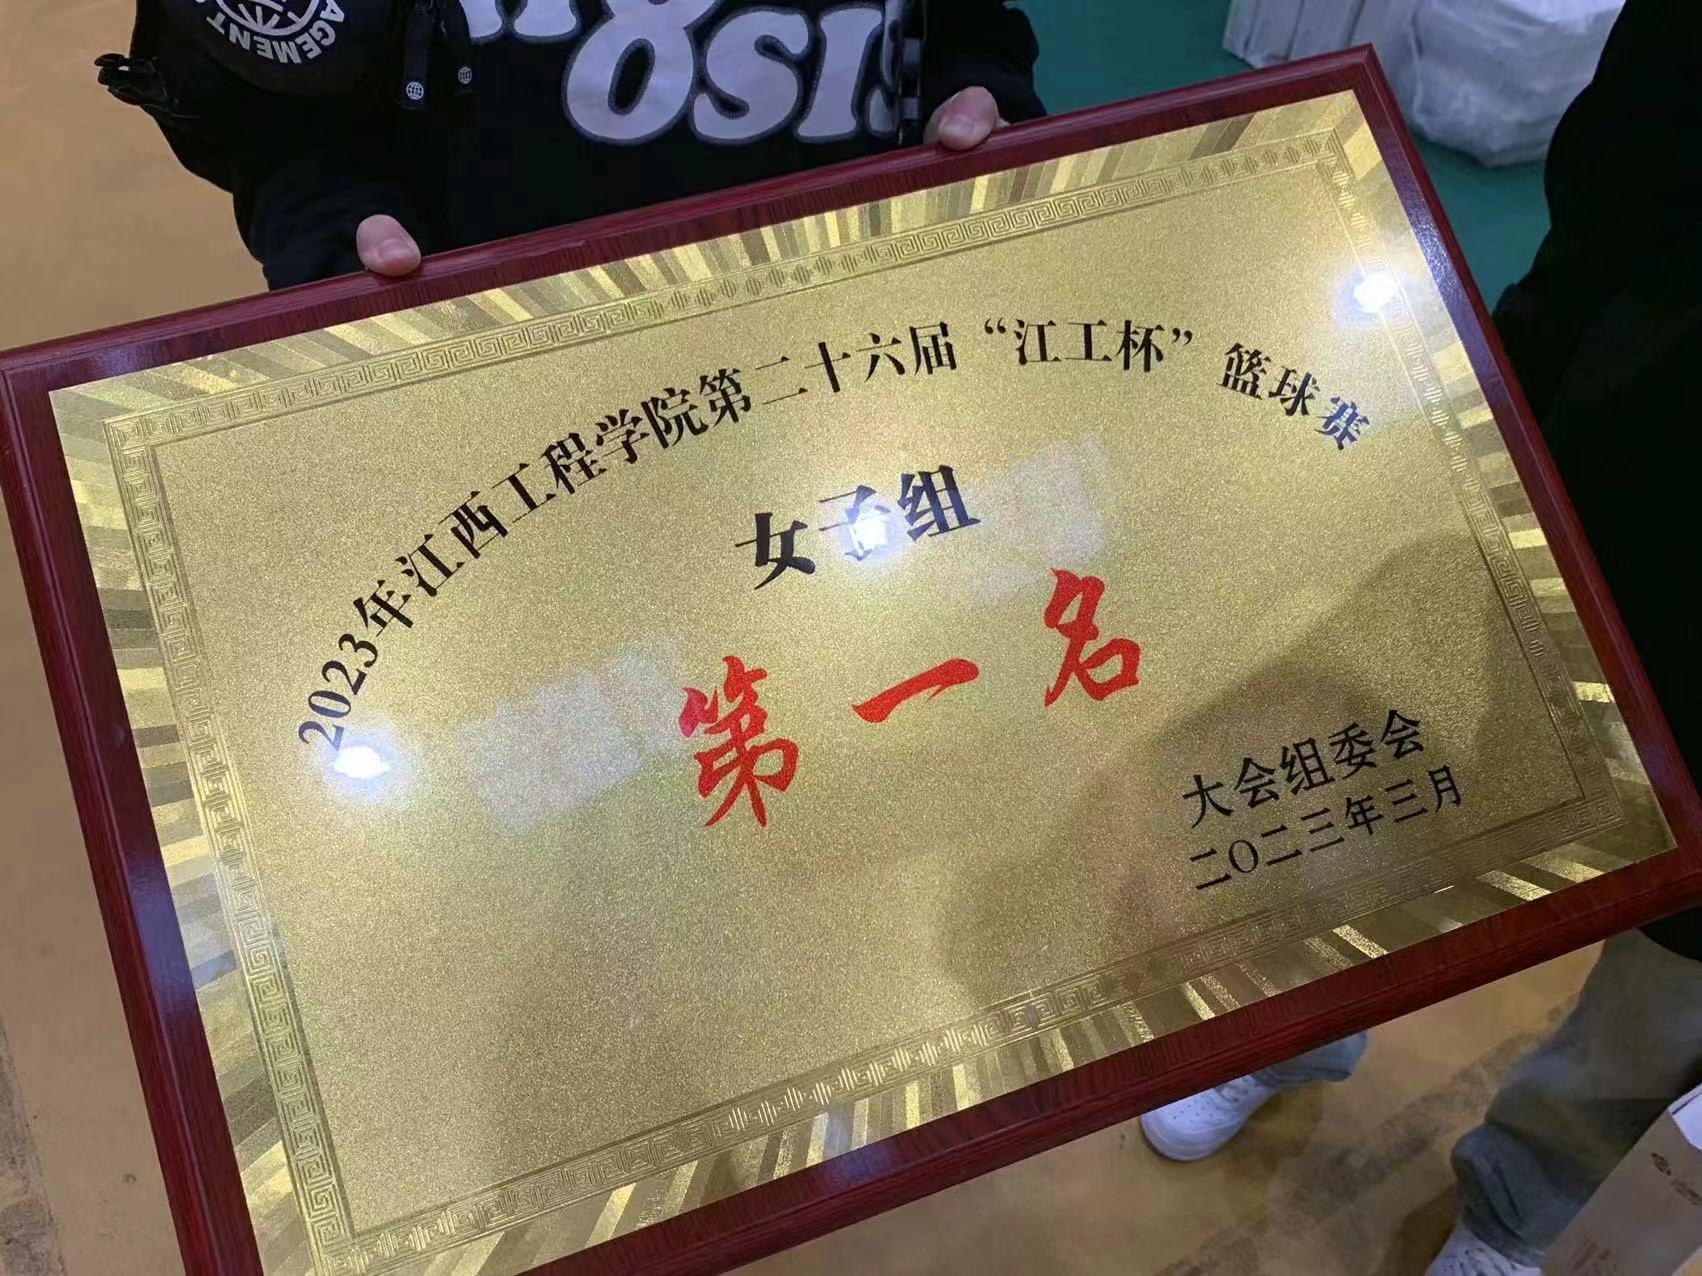 AGEMENT
2023年江西工程学院第二十六届“江工杯”篮球赛
女子组
第一名
大会组委会
二〇二三年三月